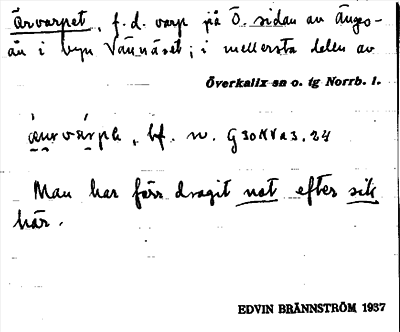 ärvarpet, f.d. varp på Ö. sidan av Änges-
ån i byn Vännäset; i mellersta delen av
Överkalix sn o. tg Norrb. l.
bf. n. G30KVa3,24
Man har förr dragit not efter sik
här.
EDVIN BRÄNNSTRÖM 1937